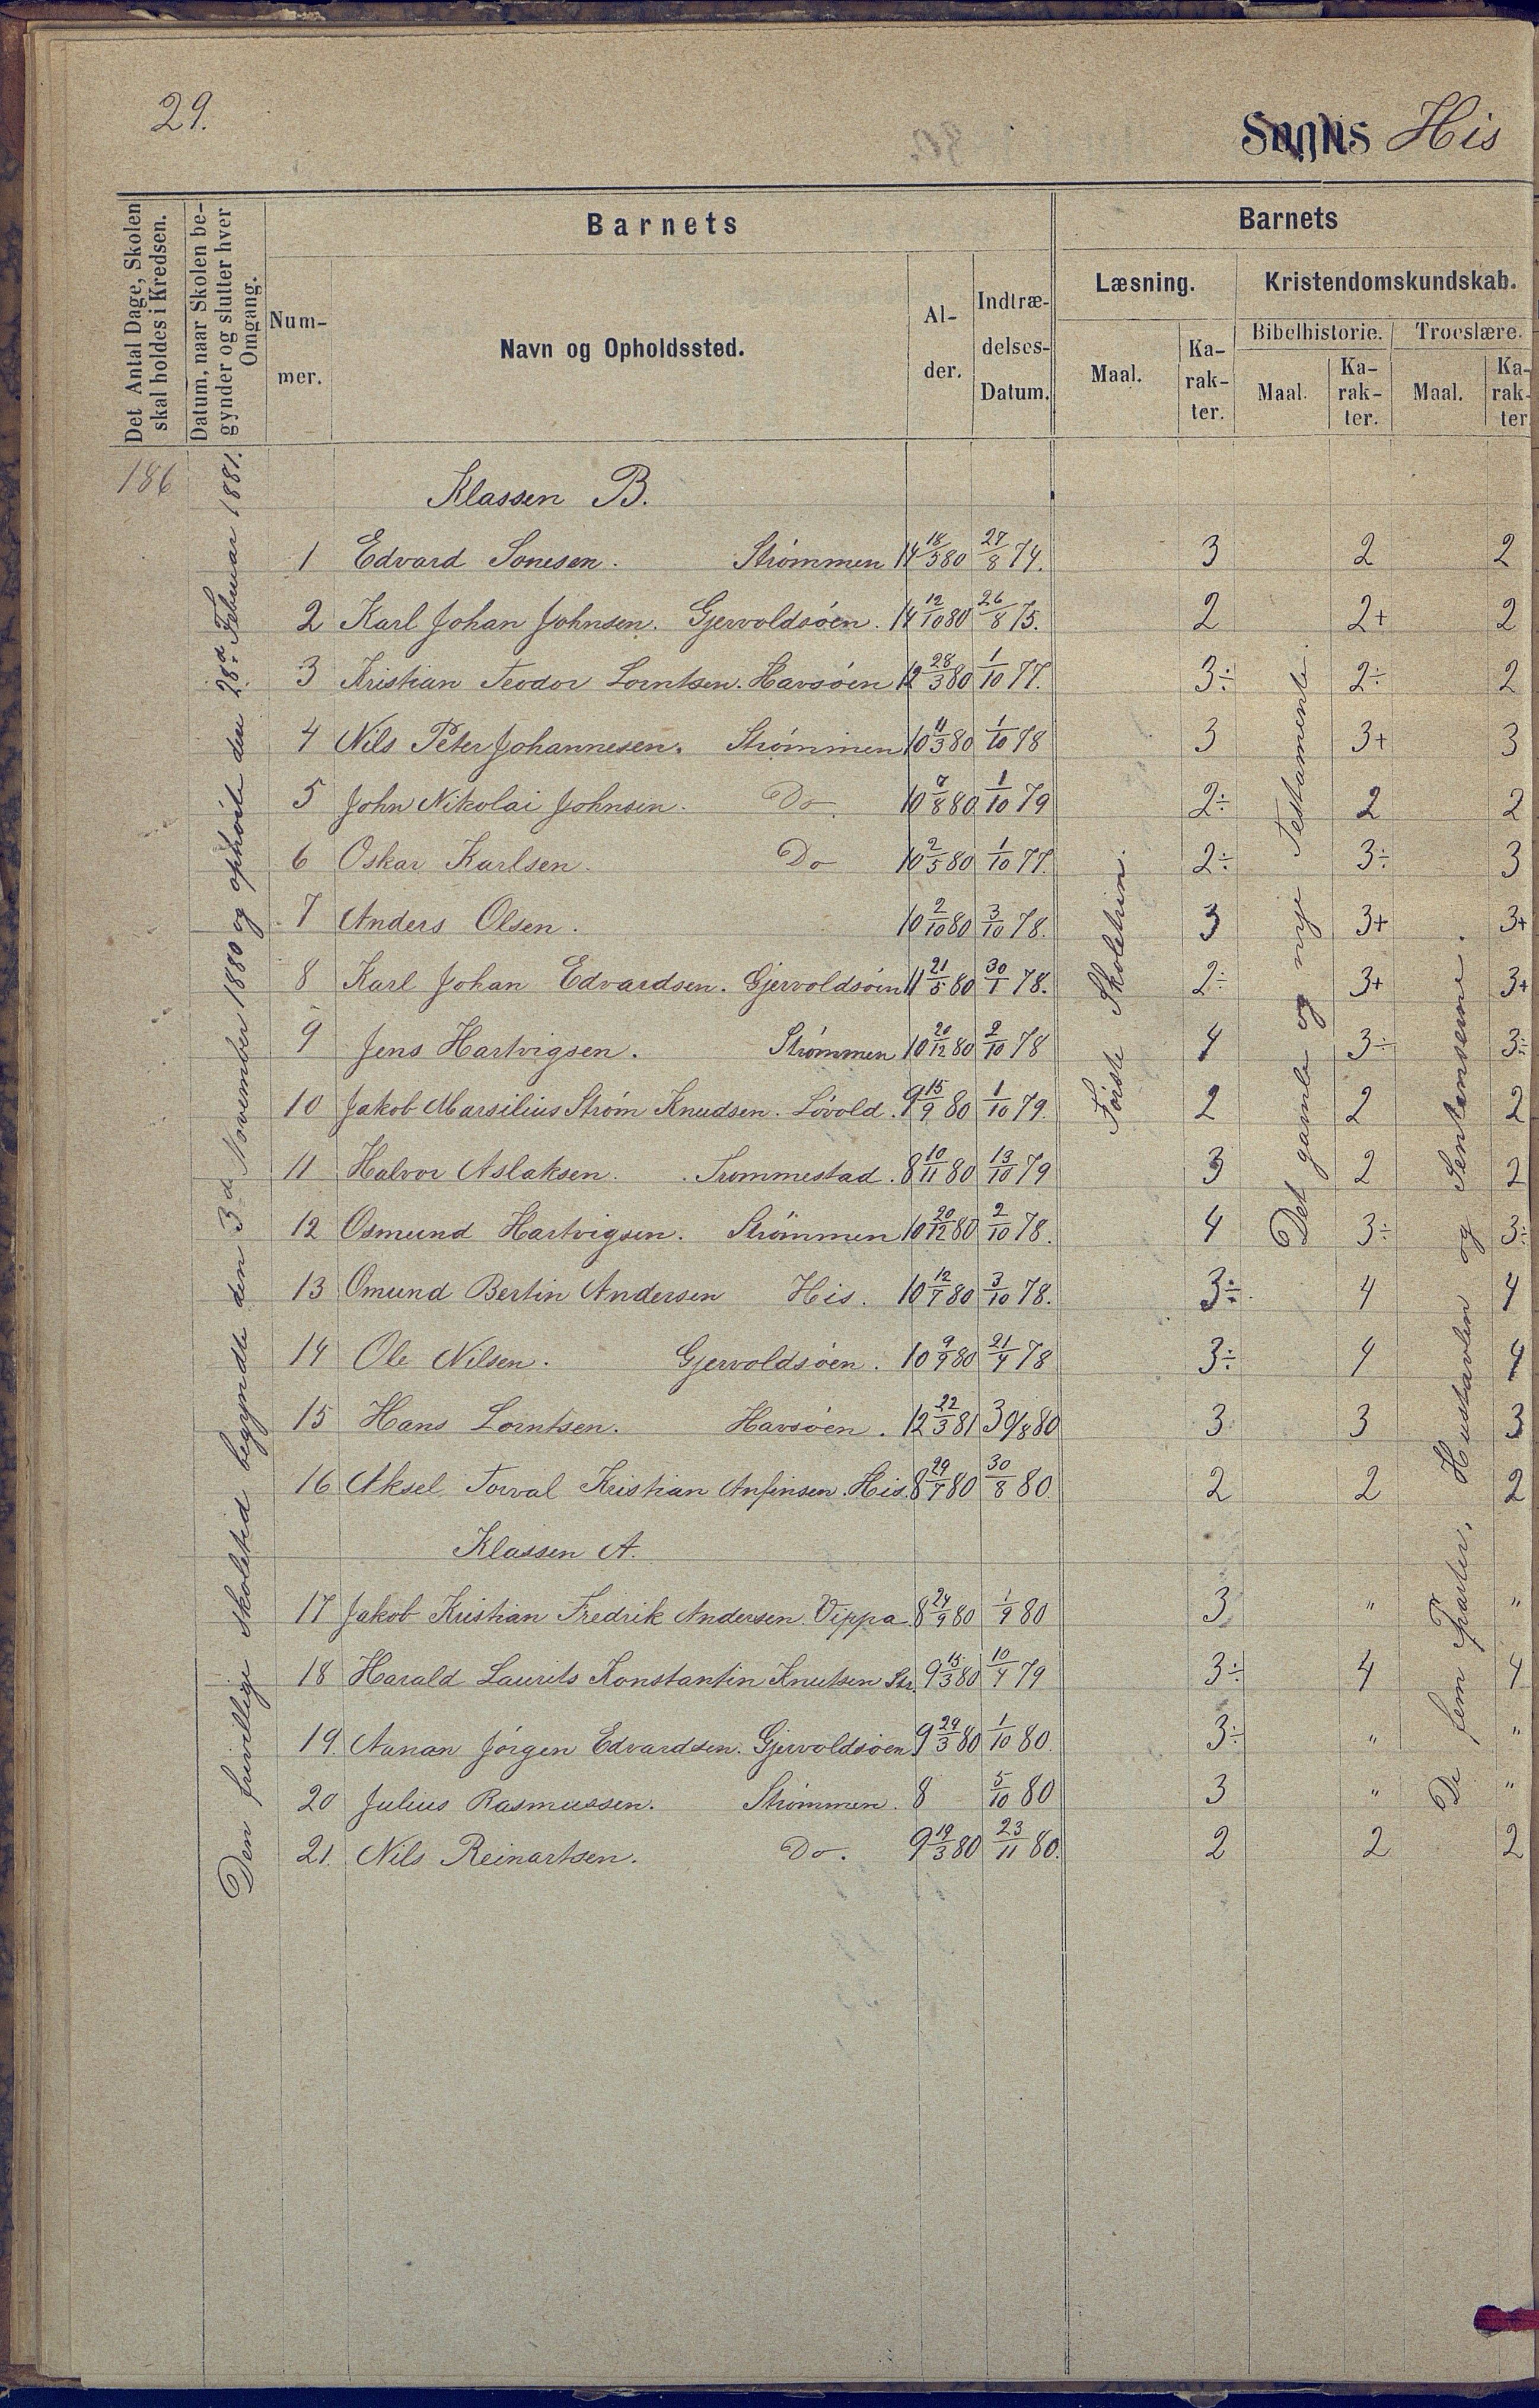 29.
Sogns His
Det Antal Dage, Skolen
skal holdes i Kredsen.
Datum, naar Skolen be-
gynder og slutter hver
Omgang.
Barnets
Num-
mer.
Navn og Opholdssted.
Al-
der.
Indtræ-
delses-
Datum.
Barnets
Læsning.
Maal.
Ka-
rak-
ter.
Kristendomskundskab.
Bibelhistorie.
Troeslære.
Maal.
Ka-
rak-
ter.
Maal.
Ka-
rak-
ter
186
Den frivillige Skoletid begyndte den 3d November 1880 og ophørte den 28d Februar 1881.
Første Skoletrin.
Det gamle og nye Testamente.
De fem Parter, Hustavlen og Sentenserne.
Klassen B.
1 Edvard Sonesen. Strømmen 14 18/5 80 27/8 74. 3 2 2
2 Karl Johan Johnsen. Gjervoldsøen. 14 12/10 80 26/8 75. 2 2+ 2
3 Kristian Teodor Lorntsen. Havsøen 12 28/3 80 1/10 77. 3÷ 2÷ 2
4 Nils Peter Johannesen. Strømmen 10 11/3 80 1/10 78 3 3+ 3
5 John Nikolai Johnsen. Do. 10 7/8 80 1/10 79 2÷ 2 2
6 Oskar Karlsen. Do 10 2/5 80 1/10 77. 2÷ 3÷ 3
7 Anders Olsen. 10 2/10 80 3/10 78. 3 3+ 3+
8 Karl Johan Edvardsen. Gjervoldsøen 11 21/5 80 30/1 78. 2÷ 3+ 3+
9 Jens Hartvigsen. Strømmen 10 20/12 80 2/10 78 4 3÷ 3÷
10 Jakob Marsilius Strøm Knudsen. Løvold. 9 15/9 80 1/10 79. 2 2 2
11 Halvor Aslaksen. Trommestad. 8 10/11 80 13/10 79 3 2 2
12 Osmund Hartvigsen. Strømmen 10 20/12 80 2/10 78. 4 3÷ 3÷
13 Omund Bertin Andersen His. 10 12/7 80 3/10 78. 3÷ 4 4
14 Ole Nilsen. Gjervoldsøen. 10 9/9 80 21/4 78 3÷ 4 4
15 Hans Lorntsen. Havsøen. 12 22/3 81 30/8 80 3 3 3
16 Aksel Torval Kristian Anfinsen. His. 8 29/7 80 30/8 80. 2 2 2
Klassen A.
17 Jakob Kristian Fredrik Andersen. Vippa. 8 24/9 80 1/9 80 3 " "
18 Harald Laurits Konstantin Knutsen Str. 9 15/3 80 10/4 79 3÷ 4 4
19. Aanan Jørgen Edvardsen. Gjervoldsøen 9 29/3 80 1/10 80. 3÷ " "
20 Julius Rasmussen. Strømmen. 8 5/10 80 3 " "
21. Nils Reinartsen. Do. 9 19/3 80 23/11 80. 2 2 2